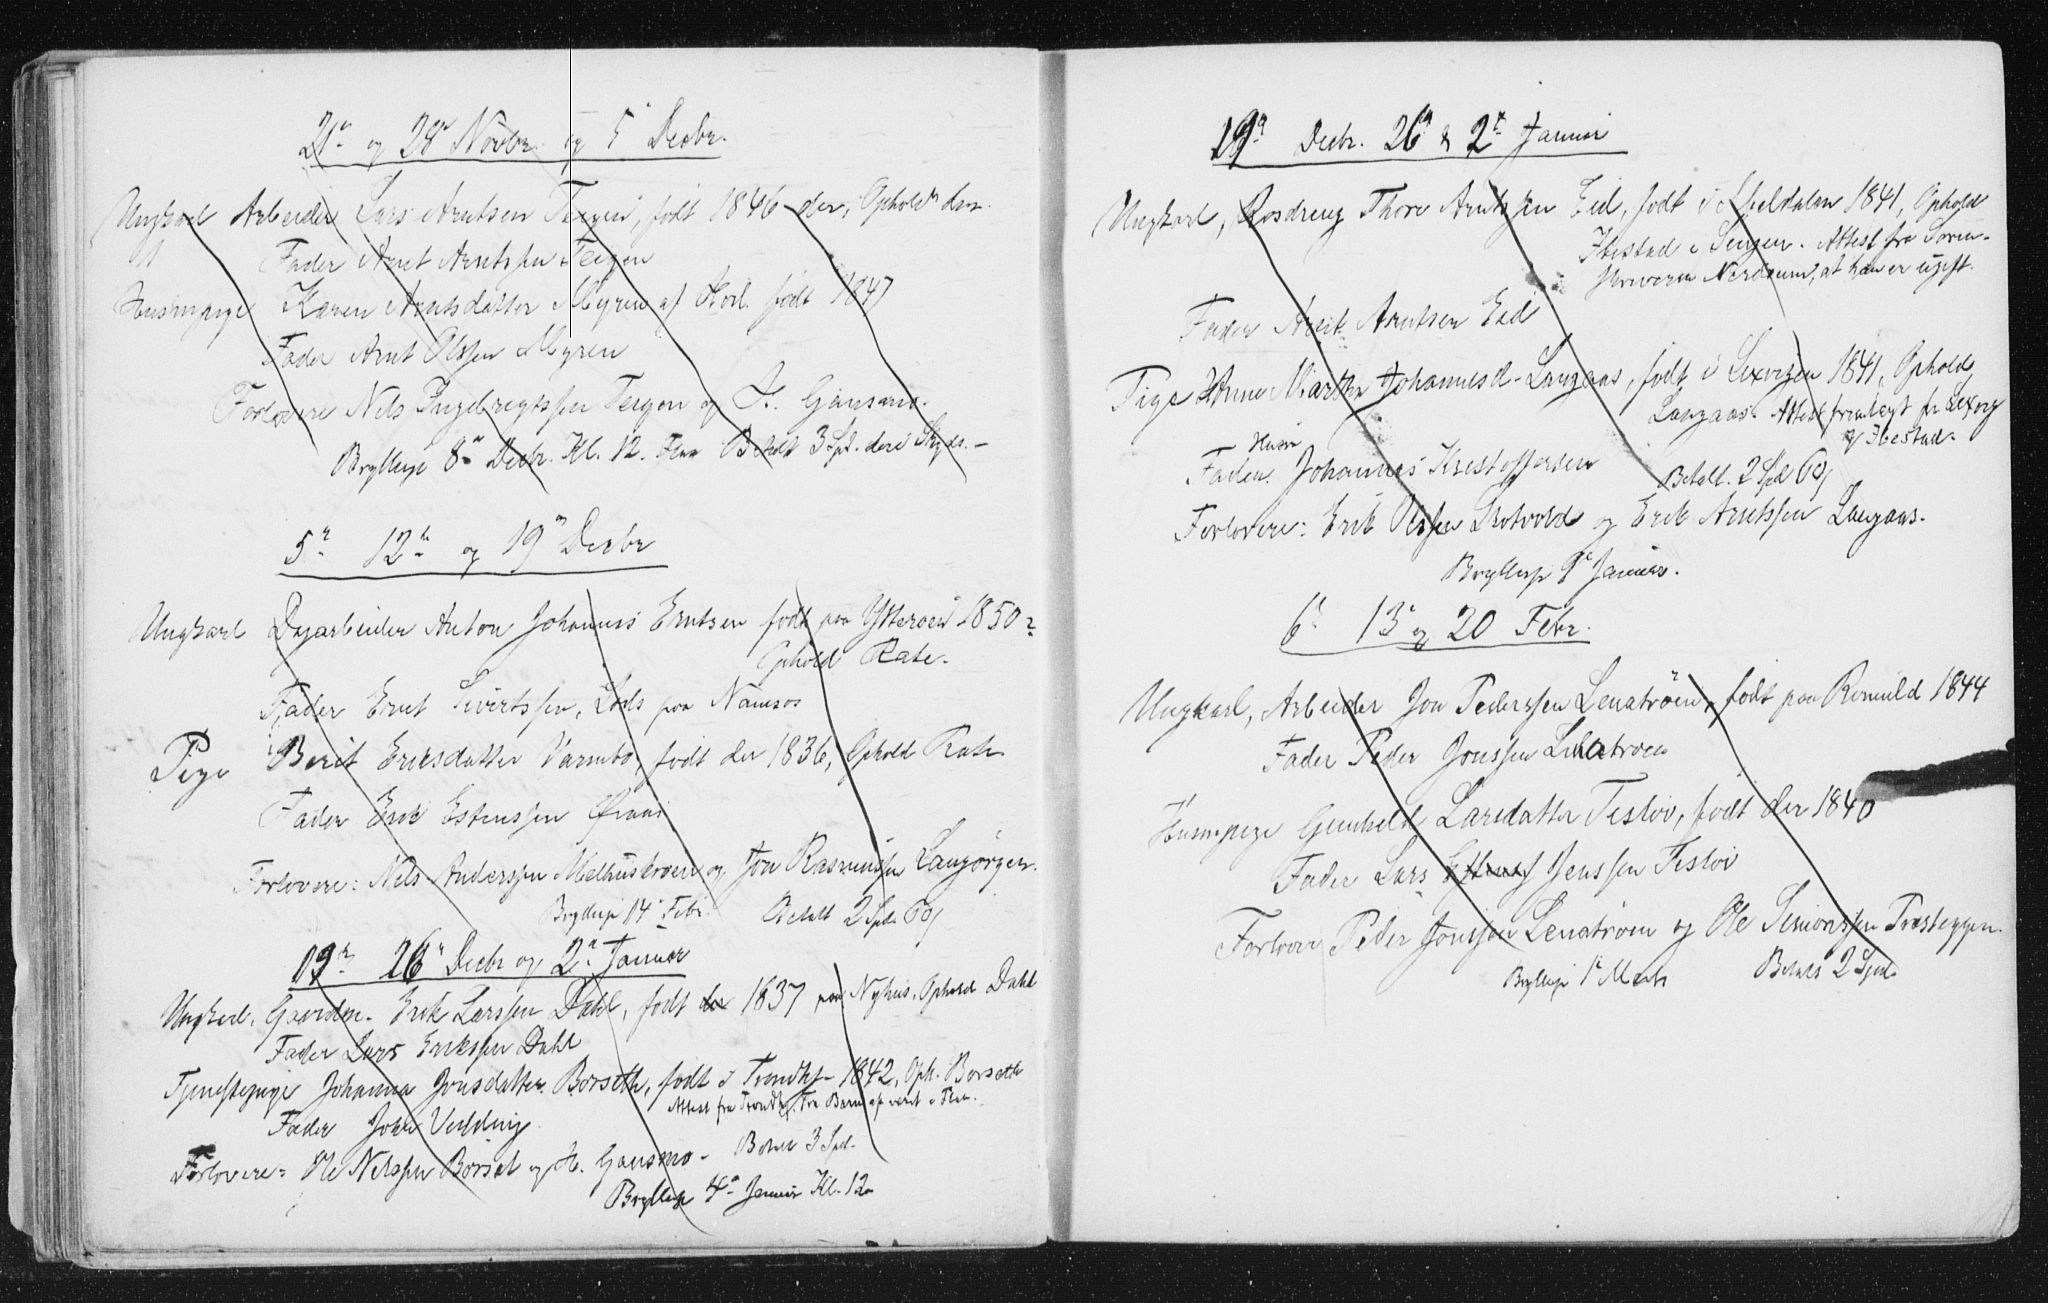 21de og 28de Novbr. og 5te Decbr.
Ungkarl Arbeider Lars Arntsen Teigen, født 1846 der, Ophold den
Fader Arnt Arntssen Teigen
Huusmpige Karen Arntsdatter Myren af født 1847
Fader Arnt Olssen Myren
Forlovere Nils Ingebregtssen Teigen og H. Gausmo.
Bryllup 8de Decbr. Kl. 12. Flaa Betalt 3 Spd. deri Skyds. -
5te 12te og 19de Decbr
Ungkarl Dagarbeider Anton Johannes Erntsen født paa Ytterøen 1850
Ophold Rate.
Fader Ernt Sivertssen, Lods paa Namsos
Pige Berit Eriksdatter Varmbo, født der 1836, Ophold Rate
Fader Erik Estenssen
Forlovere: Nils Anderssen Melhuskroen og Jon Rasmussen Langørgen.
Bryllup 14de Febr. Betalt 2 Spd. 60
19de 26de Decbr og 2den Januar
Ungkarl, Gaardm. Erik Larssen Dahl, født der 1837 paa Nyhus, Ophold Dahl
Fader Lars Erikssen Dahl
Tjenestepige Johanna Jonsdatter Borseth, født i Trondhj. 1842, Oph. Borseth
Attest fra Trondhj.
Fader John Vedding
Forlovere: Ole Nilssen Borset og H. Gausmo - Betalt 3 Spd.
Bryllup 4de Januar Kl. 12
19de Decbr. 26de & 2den Januar
Ungkarl, Thore Arntssen Eid, født i Speldalen 1841, Ophold
Ibestad i Senjen. Attest fra Soren-
skriveren Nerdrum, at han er ugift.
Fader Arnt Arntsen Eid
Pige Anne Martha Johannesd. Langaas, født i Lexvigen 1841, Ophold
Langaas. Attest fremlagt fr Lexvig
og Ibestad.
Husm
Fader Johannes Kristoffersen Betalt. 2 Spd 60
Forlovere: Erik Olssen Skotvold og Erik Arntssen Langaas.
Bryllup Januar.
6te 13de og 20 Febr.
Ungkarl, Arbeider Jon Pederssen Lenatrøen, født paa Romuld 1844
Fader Peder Jonssen Lenatrøen
Husmpige Gunhild Larsdatter Tesløv, født der 1840
Fader Lars Jenssen Tesløv
Forlovere Peder Jonssen Lenatrøen og Ole Simonssen Træsteggen.
Bryllup 1te Marts Betalt 2 Spd.